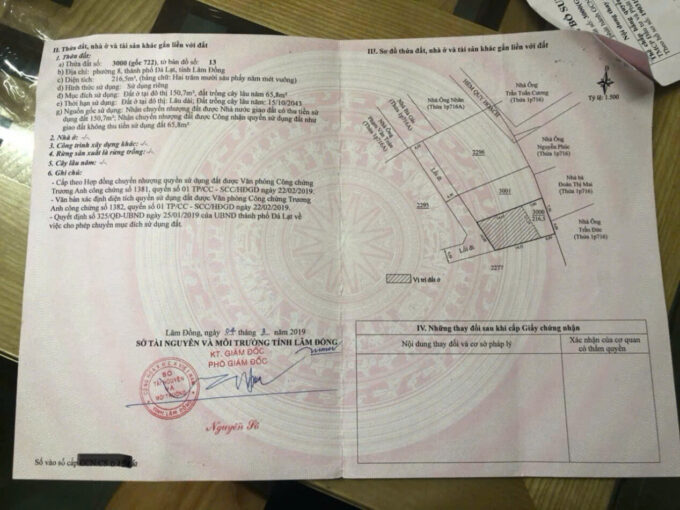 II. Thửa đất, nhà ở và tài sản khác gắn liền với đất
1. Thửa đất:
a) Thửa đất số: 3000 (gốc 722), tờ bản đồ số: 13
b) Địa chỉ: phường 8, thành phố Đà Lạt, tỉnh Lâm Đồng
c) Diện tích: 216,5m², (bằng chữ: Hai trăm mười sáu phẩy năm mét vuông)
d) Hình thức sử dụng: Sử dụng riêng
đ) Mục đích sử dụng: Đất ở tại đô thị 150,7m²; Đất trồng cây lâu năm 65,8m²
e) Thời hạn sử dụng: Đất ở tại đô thị: Lâu dài; Đất trồng cây lâu năm: 15/10/2043
g) Nguồn gốc sử dụng: Nhận chuyển nhượng đất được Nhà nước giao đất có thu tiền sử
dụng đất 150,7m²; Nhận chuyển nhượng đất được Công nhận quyền sử dụng đất như
giao đất không thu tiền sử dụng đất 65,8m²
2. Nhà ở: -/-
3. Công trình xây dựng khác: -/-
4. Rừng sản xuất là rừng trồng: -/-
5. Cây lâu năm: -/-
6. Ghi chú:
- Cấp theo Hợp đồng chuyển nhượng quyền sử dụng đất được Văn phòng Công chứng
Trương Anh công chứng số 1381, quyển số 01 TP/CC - SCC/HĐGD ngày 22/02/2019.
- Văn bản xác định diện tích quyền sử dụng đất được Văn phòng Công chứng Trương
Anh công chứng số 1382, quyển số 01 TP/CC - SCC/HĐGD ngày 22/02/2019.
- Quyết định số 325/QĐ-UBND ngày 25/01/2019 của UBND thành phố Đà Lạt về
việc cho phép chuyển mục đích sử dụng đất.
Lâm Đồng, ngày 04 tháng 3 năm 2019
SỞ TÀI NGUYÊN VÀ MÔI TRƯỜNG TỈNH LÂM ĐỒNG
KT. GIÁM ĐỐC
PHÓ GIÁM ĐỐC
SỞ
TÀI NGUYÊN
VÀ
MÔI TRƯỜNG
TỈNH LÂM ĐỒNG
Số vào sổ cấp
III. Sơ đồ thửa đất, nhà ở và tài sản khác gắn liền với đất
HẺM QUY HOẠCH
Tỷ lệ 1:500
Nhà Ông
Trần Tuấn Cường
(Thửa 1p716)
Nhà Ông Nhân
(Thửa 1p716A)
(Thửa 1p716A)
Nhà Ông
Nguyễn Phúc
(Thửa 1p716)
Nhà bà
Đoàn Thị Mai
(Thửa 1p716)
Nhà Ông
Trần Đức
(Thửa 1p716)
3296
3001
3000
216,5
2295
Lối đi
Lối đi
2277
Vị trí đất ở
IV. Những thay đổi sau khi cấp Giấy chứng nhận
Nội dung thay đổi và cơ sở pháp lý
Xác nhận của cơ quan
có thẩm quyền